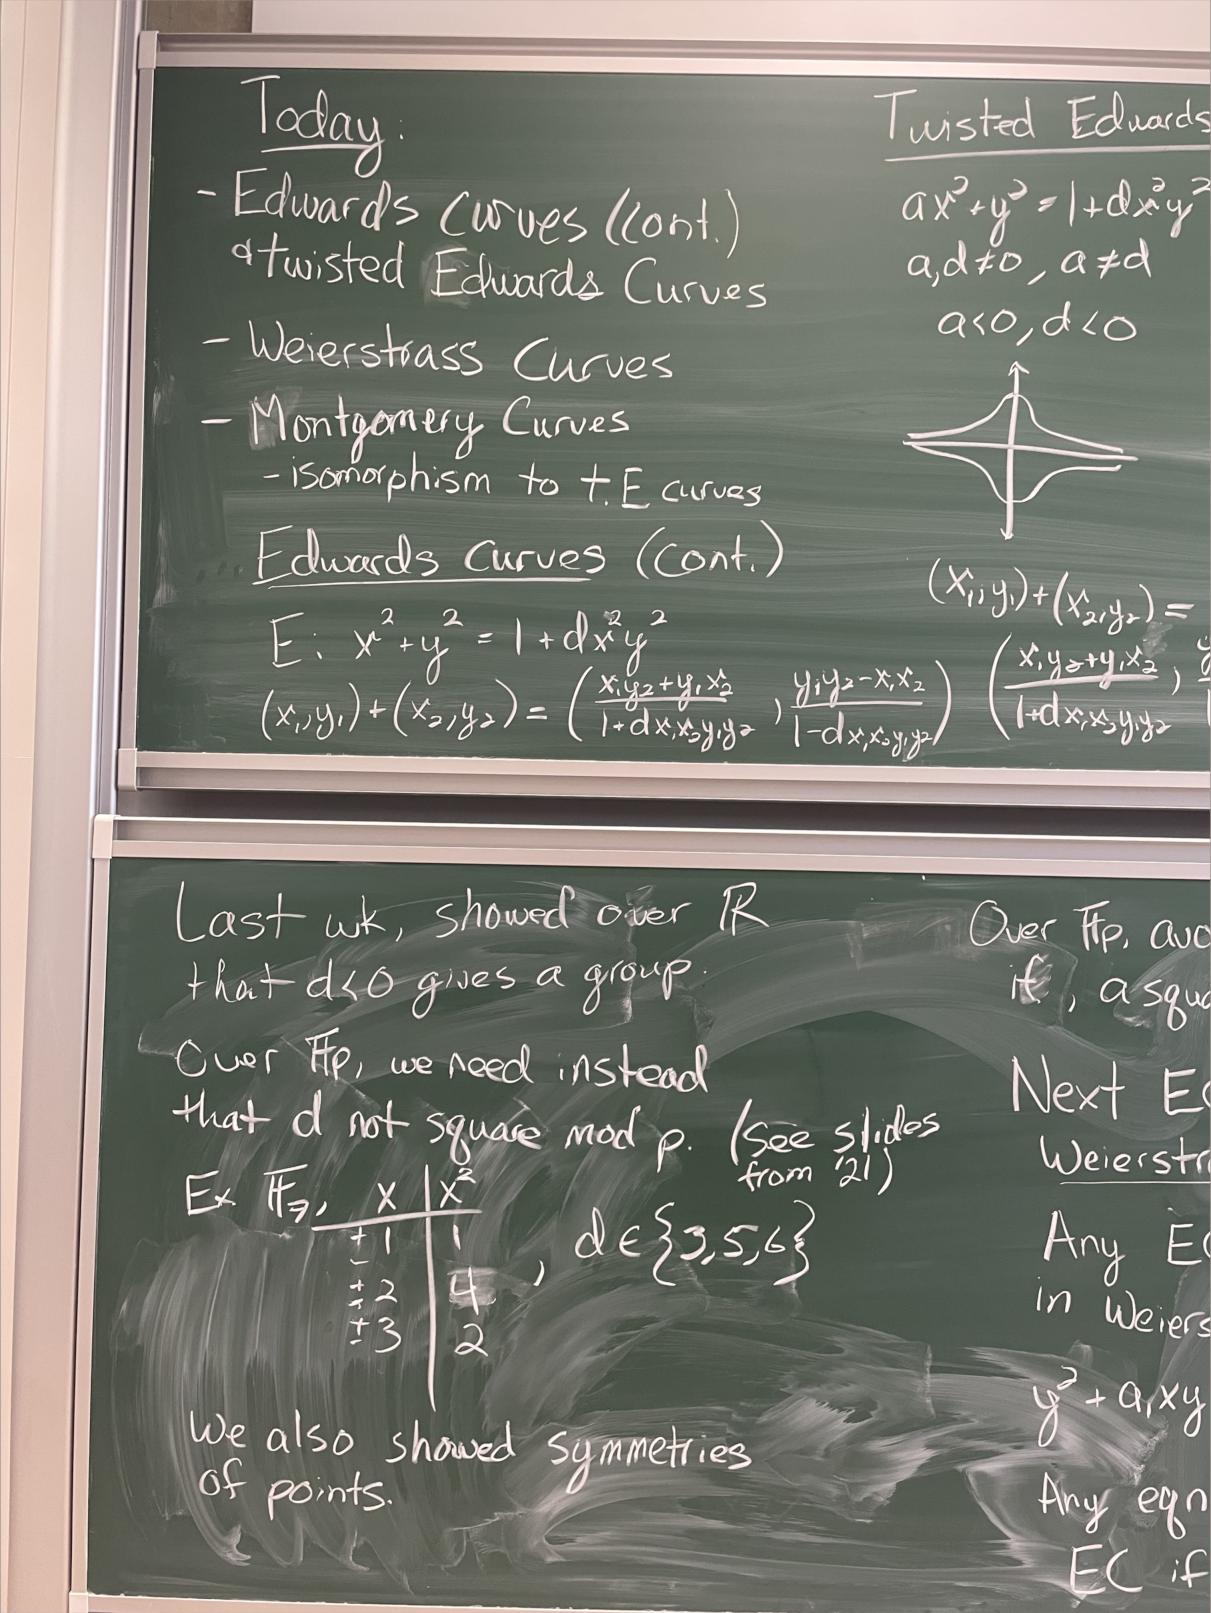 Today:
- Edwards Curves (cont.)
& twisted Edwards Curves
- Weierstrass Curves
- Montgomery Curves
- isomorphism to t.E curves
Edwards Curves (cont.)
E: x²+y² = 1+dx²y²
(x₁,y₁)+(x₂,y₂) = ((x₁y₂+y₁x₂)/(1+dx₁x₂y₁y₂), (y₁y₂-x₁x₂)/(1-dx₁x₂y₁y₂))
Twisted Edwards
ax²+y² = 1+dx²y²
a,d≠0, a≠d
a<0, d<0
(x₁,y₁)+(x₂,y₂) =
((x₁y₂+y₁x₂)/(1+dx₁x₂y₁y₂),
Last wk, showed over ℝ
that d<0 gives a group.
Over 𝔽p, we need instead
that d not square mod p. (see slides
from '21)
Ex 𝔽₇, x | x²
±1 | 1
±2 | 4 , d∈{3,5,6}
±3 | 2
We also showed symmetries
of points.
Over 𝔽p,
if, a
Next
Any
in
y² + a₁xy
Any eqn
EC if